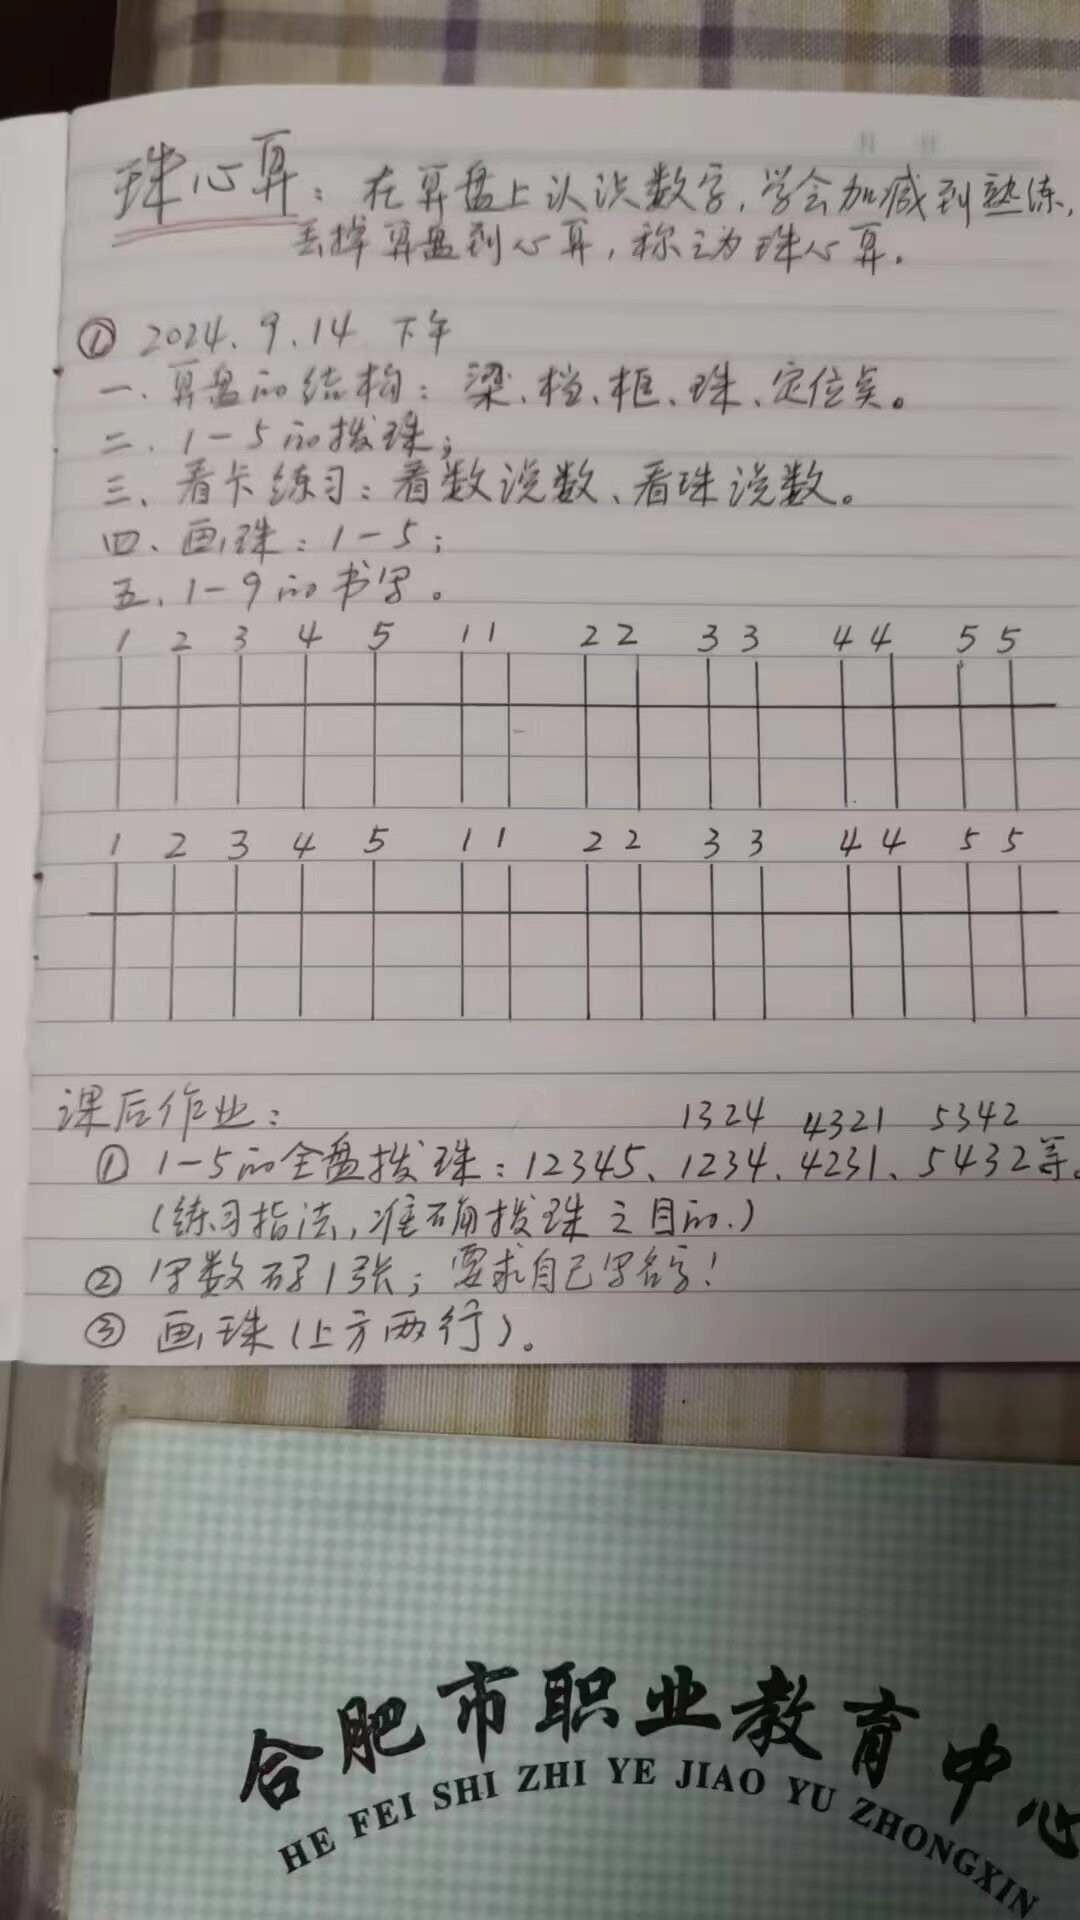 珠心算：在算盘上认识数字，学会加减到熟练，
丢掉算盘到心算，称之为珠心算。
① 2024.9.14 下午
一、算盘的结构：梁、档、框、珠、定位点。
二、1－5的拨珠；
三、看卡练习：看数说数、看珠说数。
四、画珠：1－5；
五、1－9的书写。
1 2 3 4 5 11 22 33 44 55
1 2 3 4 5 11 22 33 44 55
课后作业：
1324 4321 5342
① 1－5的全盘拨珠：12345、1234、4231、5432等。
（练习指法，准确拨珠之目的.）
② 写数码1张；要求自己写名字！
③ 画珠（上方两行）。
合肥市职业教育中心
HE FEI SHI ZHI YE JIAO YU ZHONGXIN